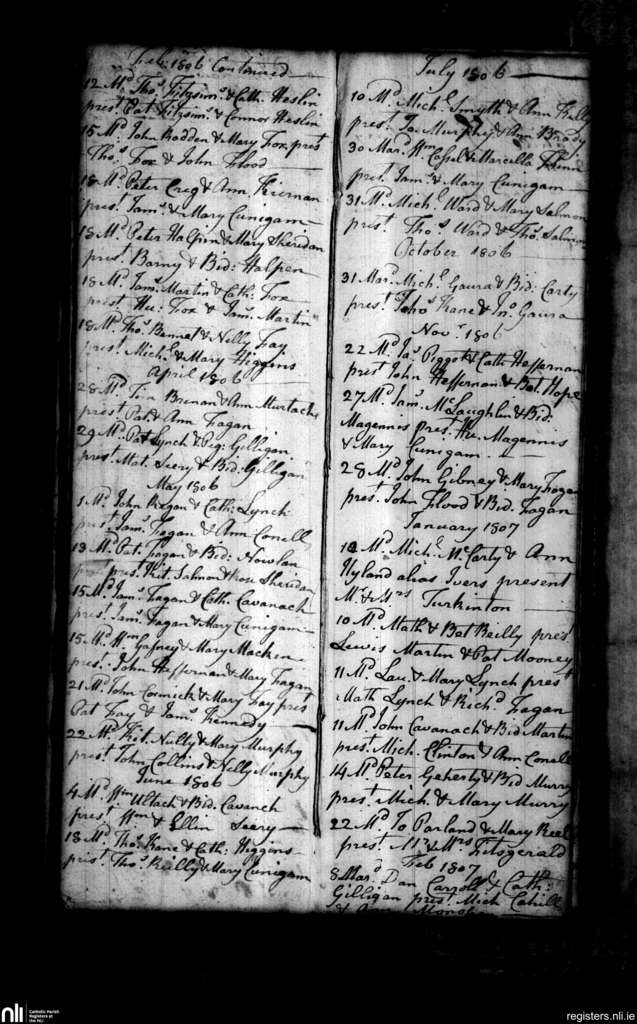 Feb 1806 Continued
12 Md. Thos. Fitzsims. & Cath. Heslin
prest. Pat Fitzsims. & Connor Heslin
15 Md. John Radden & Mary Fox prest
Thos. Fox & John Flood
18 Md. Peter Creg & Ann Kiernan
prest. Jams. & Mary Cunigam
18 Md. Peter Halpin & Mary Sheridan
prest. Barny & Bid: Halpen
18 Md. Jams. Martin & Cath: Fox
prest. Hu: Fox & Jams. Martin
18 Md. Thos. Bennet & Nelly Fay
prest. Michl. & Mary Higgins
April 1806
28 Md. Tim Brenan & Ann Murtach
prest. Pat & Ann Fagan
29 Md. Pat Lynch & Peg: Gilligan
prest. Mat. Seery & Bid. Gilligan
May 1806
1 Md. John Regan & Cath: Lynch
prest. Jams. Fagan & Ann Conell
13 Md. Pat. Fagan & Bid: Nowlan
prest. Kit. Salmon & Rose Sheridan
15 Md. Jams. Fagan & Cath Cavanach
prest. Jams. Fagan & Mary Cunigam
15 Md. Wm Gafney & Mary Macken
prest. John Heffernan & Mary Fagan
21 Md. John Cormick & Mary Fay prest
Pat Fay & Jams. Kennedy
22 Md. Kit. Nulty & Mary Murphy
prest. John Collins & Nelly Murphy
June 1806
4 Md. Wm Ultach & Bid. Cavanch
prest. Wm & Ellin Seery
18 Md. Thos. Kane & Cath: Higgins
prest. Thos. Reilly & Mary Cunigam
July 1806
10 Md. Michl. Smyth & Ann Kelly
prest. Jo. Murphy & Ann Brady
30 Mar. Wm Cassel & Marcella Flinn
prest. Jams. & Mary Cunigam
31 Md. Michl. Ward & Mary Salmon
prest. Thos. Ward & Thos. Salmon
October 1806
31 Mard. Michl. Gaura & Bid: Carty
prest. Thos. Kane & Jno. Gaura
Novr. 1806
22 Md. Jas. Piggot & Cath Heffernan
prest John Heffernan & Bet Hope
27 Md. Jams. McLaughlin & Bid:
Magennis prest. Hu. Magennis
& Mary Cunigam
28 Md. John Gibney & Mary Fagan
prest. John Flood & Bid. Fagan
January 1807
10 Md. Michl. McCarty & Ann
Hyland alias Ivers present
Mr. & Mrs Turkinton
10 Md. Math & Bet Reilly prest
Lewis Martin & Pat Mooney
11 Md. Lau. & Mary Lynch prest
Math Lynch & Richd. Fagan
11 Md. John Cavanach & Bid Martin
prest. Mich. Clinton & Ann Conell
14 Md. Peter Geherty & Bid Murry
prest. Mich. & Mary Murry
22 Md. Jo Parland & Mary Reilly
prest. Mr & Mrs Fitsgerald
Feb 1807
8 Mard. Dan Carroll & Cath:
Gilligan prest. Mich Cahill
nli
Catholic Parish
Registers at
the NLI
registers.nli.ie